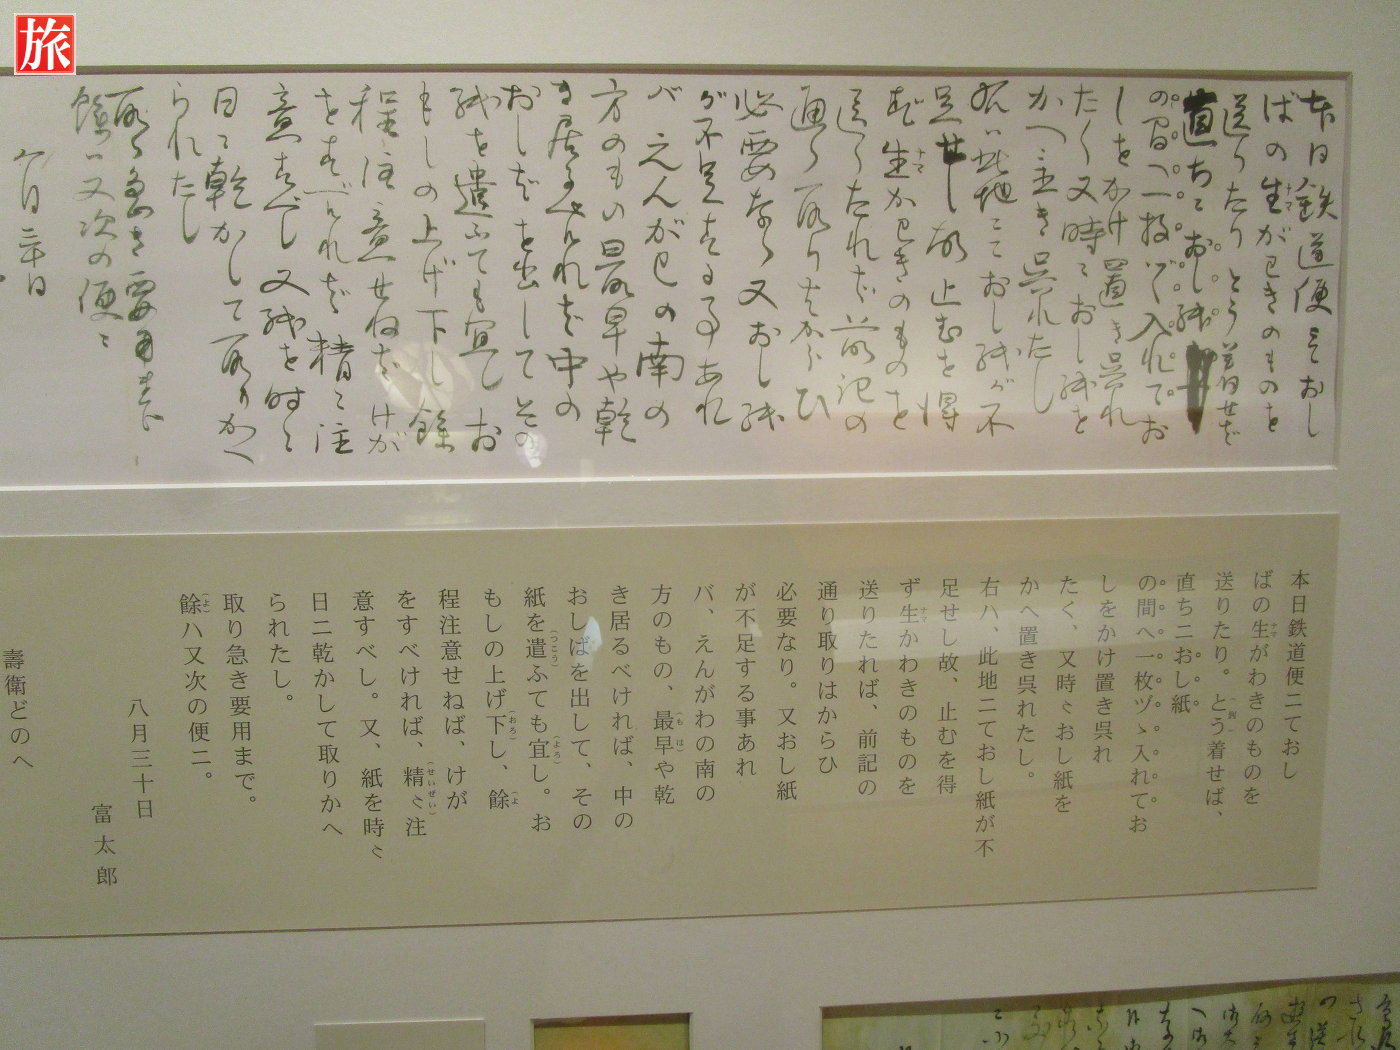 旅
本日鉄道便ニておし
ばの生がわきのものを
送りたりとう着せば
直ちニおし紙
の間へ一枚ヅヽ入れてお
しをかけ置き呉れ
たく又時〻おし紙を
かへ置き呉れたし
右ハ此地ニておし紙が不
足せし故止むを得
ず生かわきのものを
送りたれば前記の
通り取りはからひ
必要なり又おし紙
が不足する事あれ
バえんがわの南の
方のもの最早や乾
き居るべければ中の
おしばを出してその
紙を遣ふても宜しお
もしの上げ下し餘
程注意せねばけが
をすべければ精〻注
意すべし又紙を時〻
日ニ乾かして取りかへ
られたし
取り急ぎ要用まで
餘ハ又次の便ニ
八月三十日
本日鉄道便ニておし
ばの生ナマがわきのものを
送りたり。とう(到)着せば、
直ちニおし紙
の間へ一枚ヅヽ入れてお
しをかけ置き呉れ
たく、又時〻おし紙を
かへ置き呉れたし。
右ハ、此地ニておし紙が不
足せし故、止むを得
ず生ナマかわきのものを
送りたれば、前記の
通り取りはからひ
必要なり。又おし紙
が不足する事あれ
バ、えんがわの南の
方のもの、最早(もはや)や乾
き居るべければ、中の
おしばを出して、その
紙を遣(つこう)ふても宜(よろ)し。お
もしの上げ下(おろ)し、餘(よ
程注意せねば、けが
をすべければ、精〻(せいぜい)注
意すべし。又、紙を時〻
日ニ乾かして取りかへ
られたし。
取り急き要用まで。
餘(よ)ハ又次の便ニ。
八月三十日
富太郎
壽衛どのへ